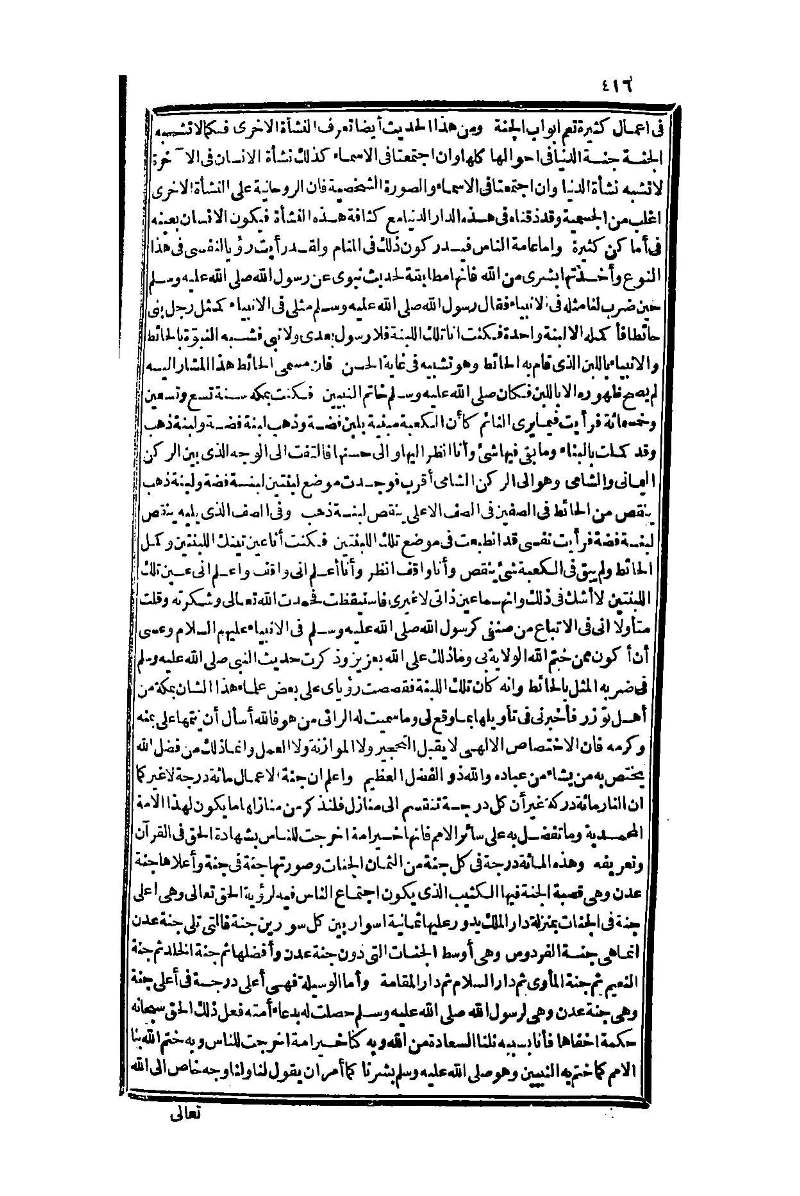 ٤١٦
فى اعمال كثيرة تعم ابواب الجنة ومن هذا الحديث أيضا تعرف النشأة الاخرى فكما لا تشبه
الجنة جنة الدنيا فى احوالها كلها وان اجتمعتا فى الاسماء كذلك نشأة الانسان فى الآخرة
لا تشبه نشأة الدنيا وان اجتمعتا فى الاسماء والصورة الشخصية فان الروحانية على النشأة الاخرى
اغلب من الجسمية وقد ذقناه فى هذه الدار الدنيا مع كثافة هذه النشأة فيكون الانسان بعينه
فى أما كن كثيرة واما عامة الناس فيدركون ذلك فى المنام ولقد رأيت رؤيا لنفسى فى هذا
النوع وأخذتها بشرى من الله فانها مطابقة لحديث نبوى عن رسول الله صلى الله عليه وسلم
حين ضرب لنا مثله فى الانبياء فقال رسول الله صلى الله عليه وسلم مثلى فى الانبياء كمثل رجل بنى
حائطا فأكمله الا لبنة واحدة فكنت انا تلك اللبنة فلا رسول بعدى ولا نبى فشبه النبوّة بالحائط
والانبياء باللبن الذى قام به الحائط وهو تشبيه فى غاية الحسن فان مسمى الحائط هذا المشار اليه
لم يصح ظهوره الا باللبن فكان صلى الله عليه وسلم خاتم النبيين فكنت بمكة سنة تسع وتسعين
وخمسمائة فرأيت فيما يرى النائم كأن الكعبة مبنية بلبن فضة وذهب لبنة فضة ولبنة ذهب
وقد كملت بالبناء وما بقى فيها شئ وأنا انظر اليها والى حسنها فالتفت الى الوجه الذى بين الركن
اليمانى والشامى وهو الى الركن الشامى أقرب فوجدت موضع لبنتين لبنة فضة ولبنة ذهب
ينقص من الحائط فى الصفين فى الصف الاعلى ينقص لبنة ذهب وفى الصف الذى يليه ينقص
لبنة فضة فرأيت نفسى قد انطبعت فى موضع تلك اللبنتين فكنت أنا عين تينك اللبنتين وكمل
الحائط ولم يبق فى الكعبة شئ ينقص وأنا واقف انظر وأنا أعلم انى واقف واعلم انى عين تلك
اللبنتين لا أشك فى ذلك وانهما عين ذاتى لا غيرى فاستيقظت فحمدت الله تعالى وشكرته وقلت
متأولا انى فى الاتباع من صنفى كرسول الله صلى الله عليه وسلم فى الانبياء عليهم السلام وعسى
أن أكون ممن ختم الله الولاية بى وما ذلك على الله بعزيز وذكرت حديث النبى صلى الله عليه وسلم
فى ضربه المثل بالحائط وانه كان تلك اللبنة فقصصت رؤياى على بعض علماء هذا الشان بمكة من
أهل توزر فأخبرنى فى تأويلها بما وقع لى وما سميت له الرائى من هو فالله أسأل أن يتمها على بمنه
وكرمه فان الاختصاص الالهى لا يقبل التحجير ولا الموازنة ولا العمل وانما ذلك من فضل الله
يختص به من يشاء من عباده والله ذو الفضل العظيم واعلم ان جنة الاعمال مائة درجة لا غير كما
ان النار مائة دركة غير أن كل درجة تنقسم الى منازل فلنذكر من منازلها ما يكون لهذا الامة
المحمدية وما تفضل به على سائر الامم فانها خير امة اخرجت للناس بشهادة الحق فى القرآن
وتعريفه وهذه المائة درجة فى كل جنة من الثمان الجنات وصورتها جنة فى جنة وأعلاها جنة
عدن وهى قصبة الجنة فيها الكثيب الذى يكون اجتماع الناس فيه لرؤية الحق تعالى وهى اعلى
جنة فى الجنات بمنزلة دار الملك يدور عليها ثمانية اسوار بين كل سورين جنة فالتى تلى جنة عدن
انما هى جنة الفردوس وهى أوسط الجنات التى دون جنة عدن وأفضلها ثم جنة الخلد ثم جنة
النعيم ثم جنة المأوى ثم دار السلام ثم دار المقامة وأما الوسيلة فهى أعلى درجة فى أعلى جنة
وهى جنة عدن وهى لرسول الله صلى الله عليه وسلم حصلت له بدعاء أمته فعل ذلك الحق سبحانه
حكمة اخفاها فأنا بسببه نلنا السعادة من الله وبه كنا خير امة اخرجت للناس وبه ختم الله بنا
الامم كما ختم به النبيين وهو صلى الله عليه وسلم بشرنا كما أمر ان يقول لنا ولنا وجه خاص الى الله
تعالى